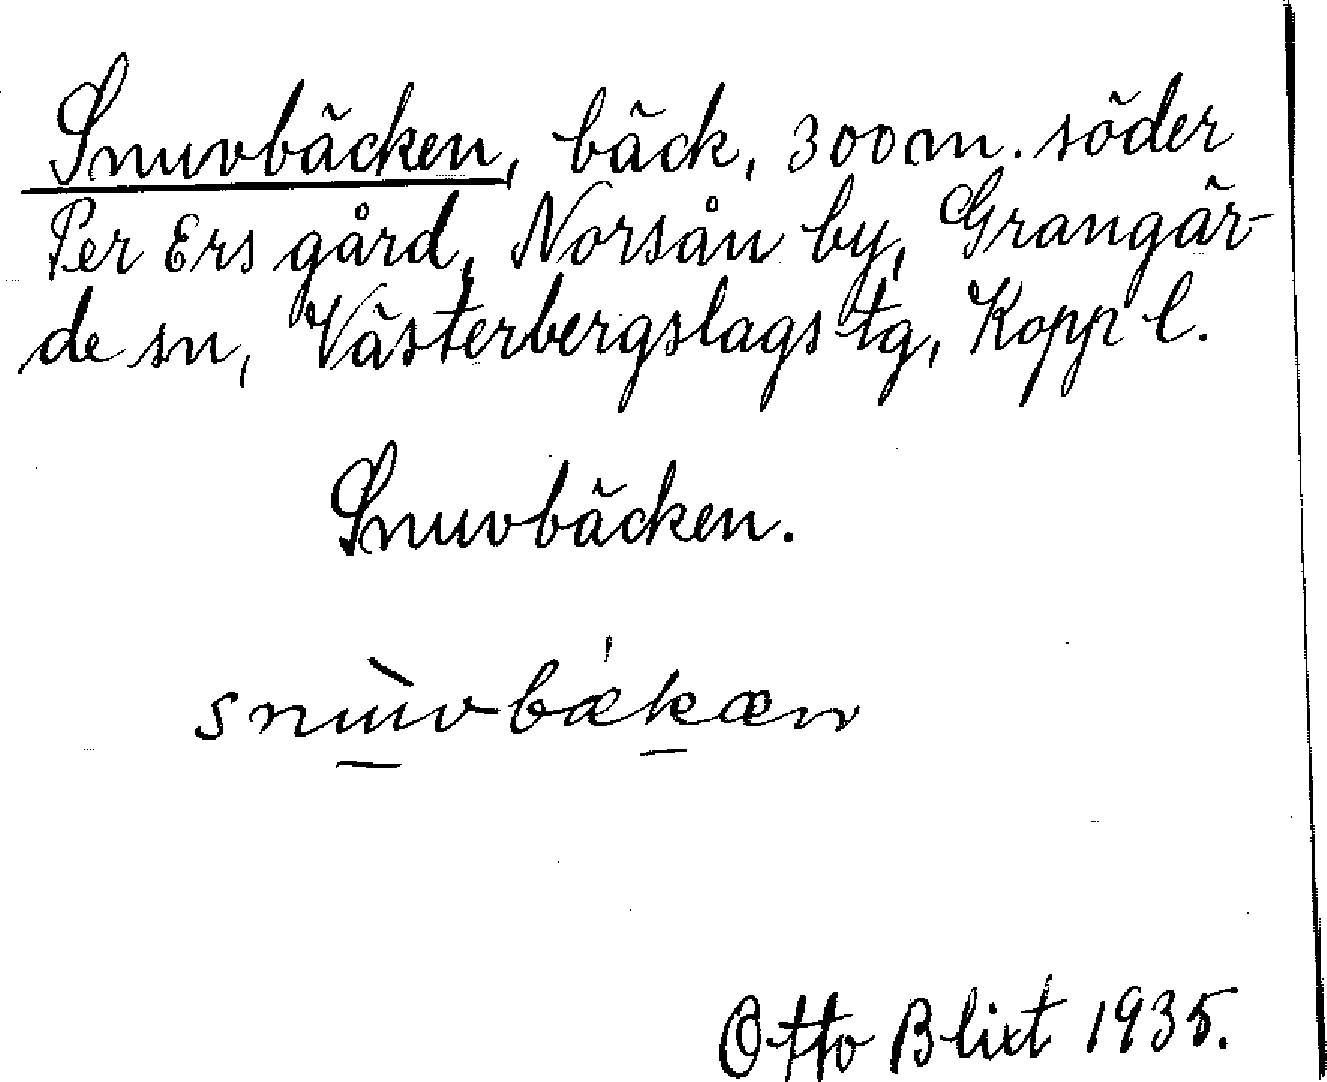 Snuvbäcken, bäck, 300 m. söder
Per Ers gård, Norsån by, Grangär-
de sn, Västerbergslags tg, Kopp l.
Snuvbäcken.
snùvbækæn
Otto Blixt 1935.